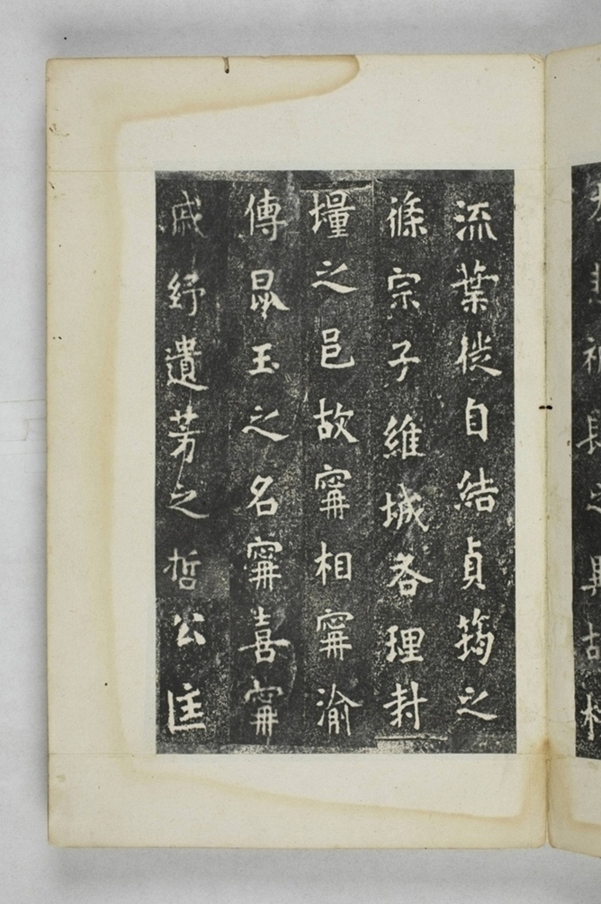 流葉從自結貞筠之
條宗子維城各理封
壃之邑故寗相寗渝
傳昆玉之名寗喜寗
戚紓遺芳之哲公匡